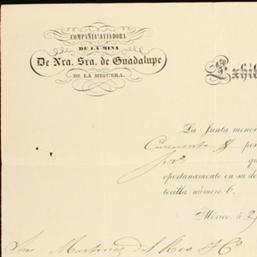 COMPAÑIA AVIADORA
DE LA MINA
De Nra. Sra. de Guadalupe
DE LA HIGUERA.
Exhib
La Junta menor
Cincuenta $ po
qu
oportunamente en su de
tocilla número 6.
Méxco. á 2
Sres. Martinez del Rio Hs